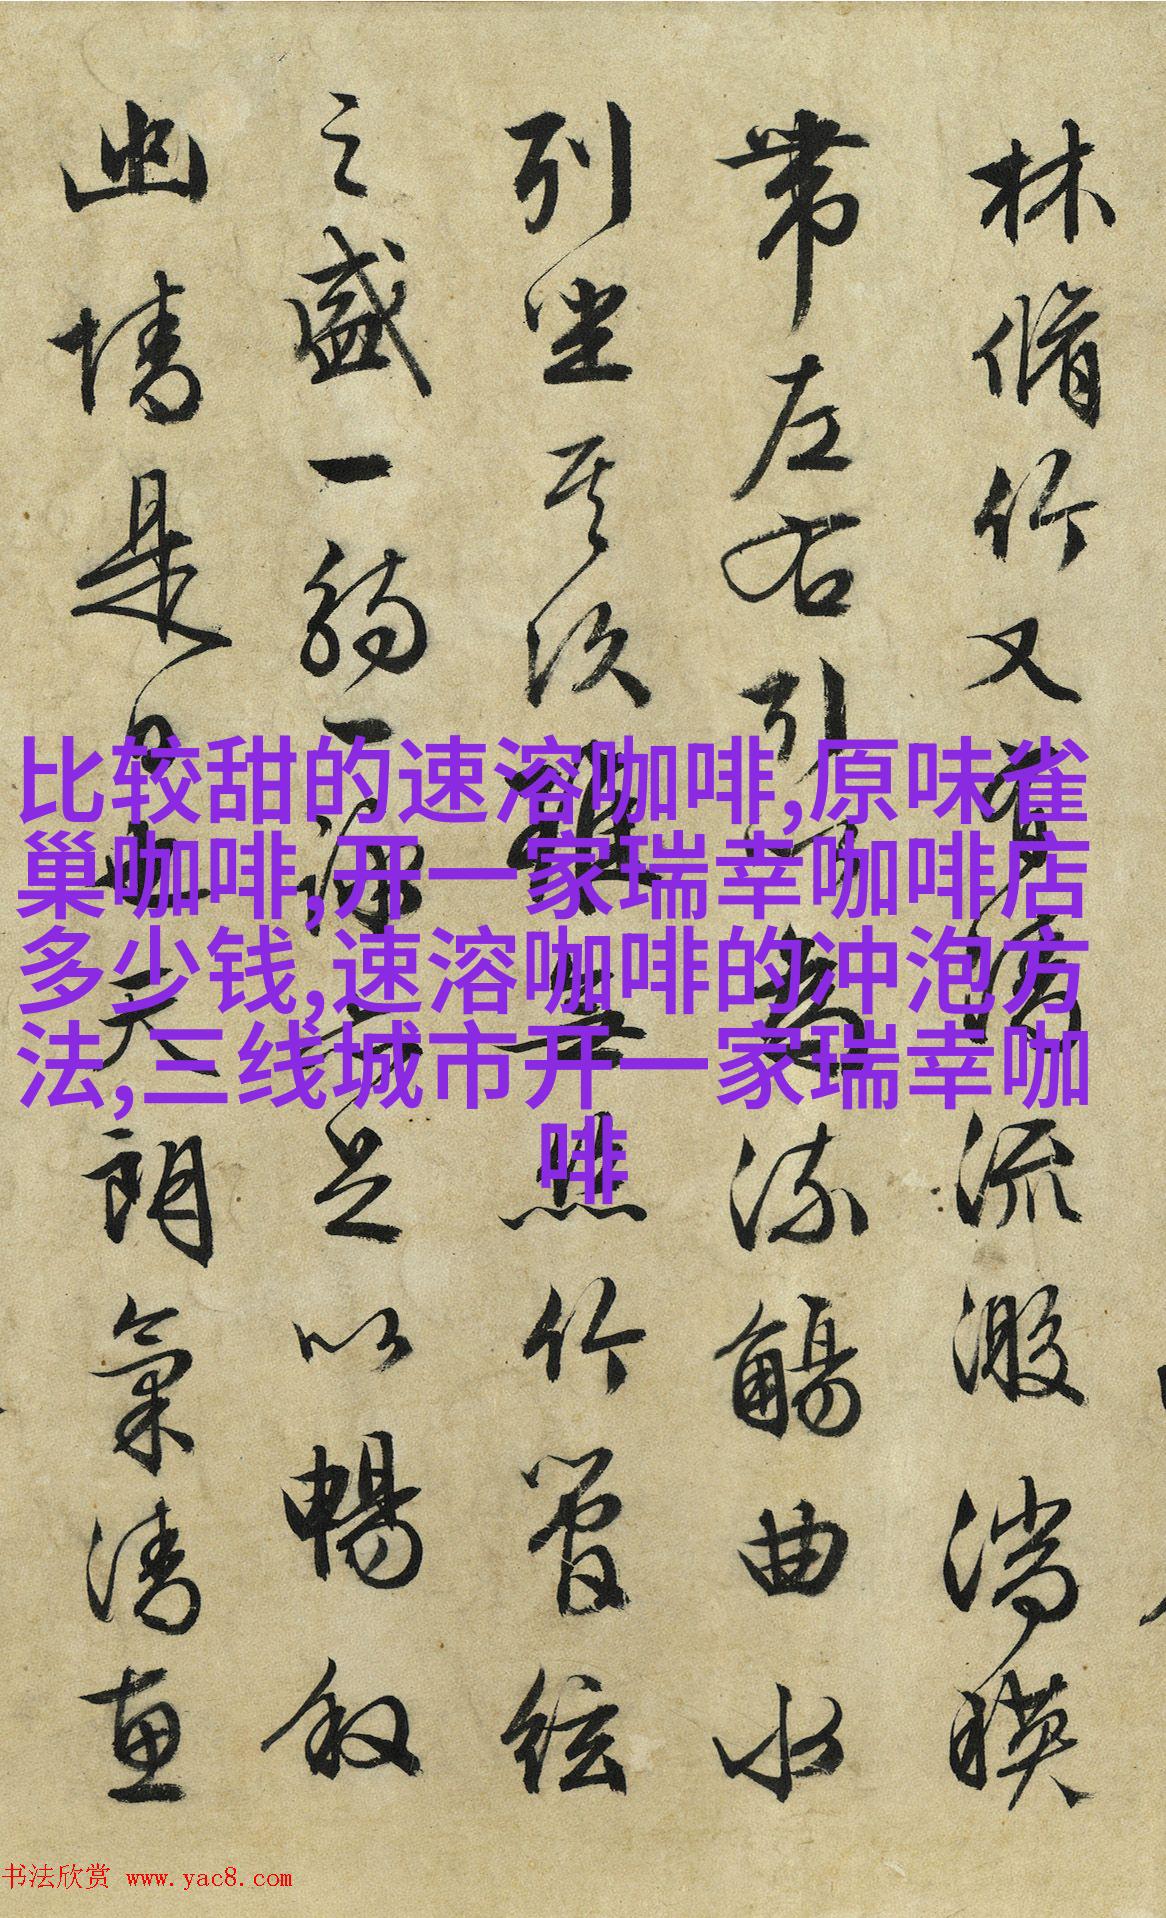 林脩竹又有清流激湍暎
帶左右引以為流觴曲水
列坐其次雖無絲竹管絃
之盛一觴一詠亦足以暢叙
幽情是日也天朗氣清惠
比较甜的速溶咖啡,原味雀
巢咖啡,开一家瑞幸咖啡店
多少钱,速溶咖啡的冲泡方
法,三线城市开一家瑞幸咖
啡
书法欣赏 www.yac8.com